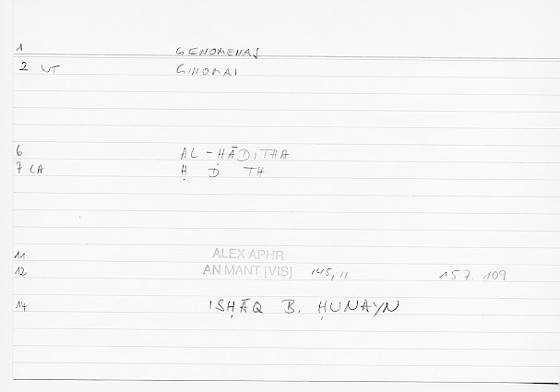 1 GENOMENAS
2 WT GINOMAI
6 AL-ḤĀDITHA
7 LA Ḥ D TH
11 ALEX APHR
12 AN MANT [VIS] 145,11 157.109
14 ISḤĀQ B. ḤUNAYN